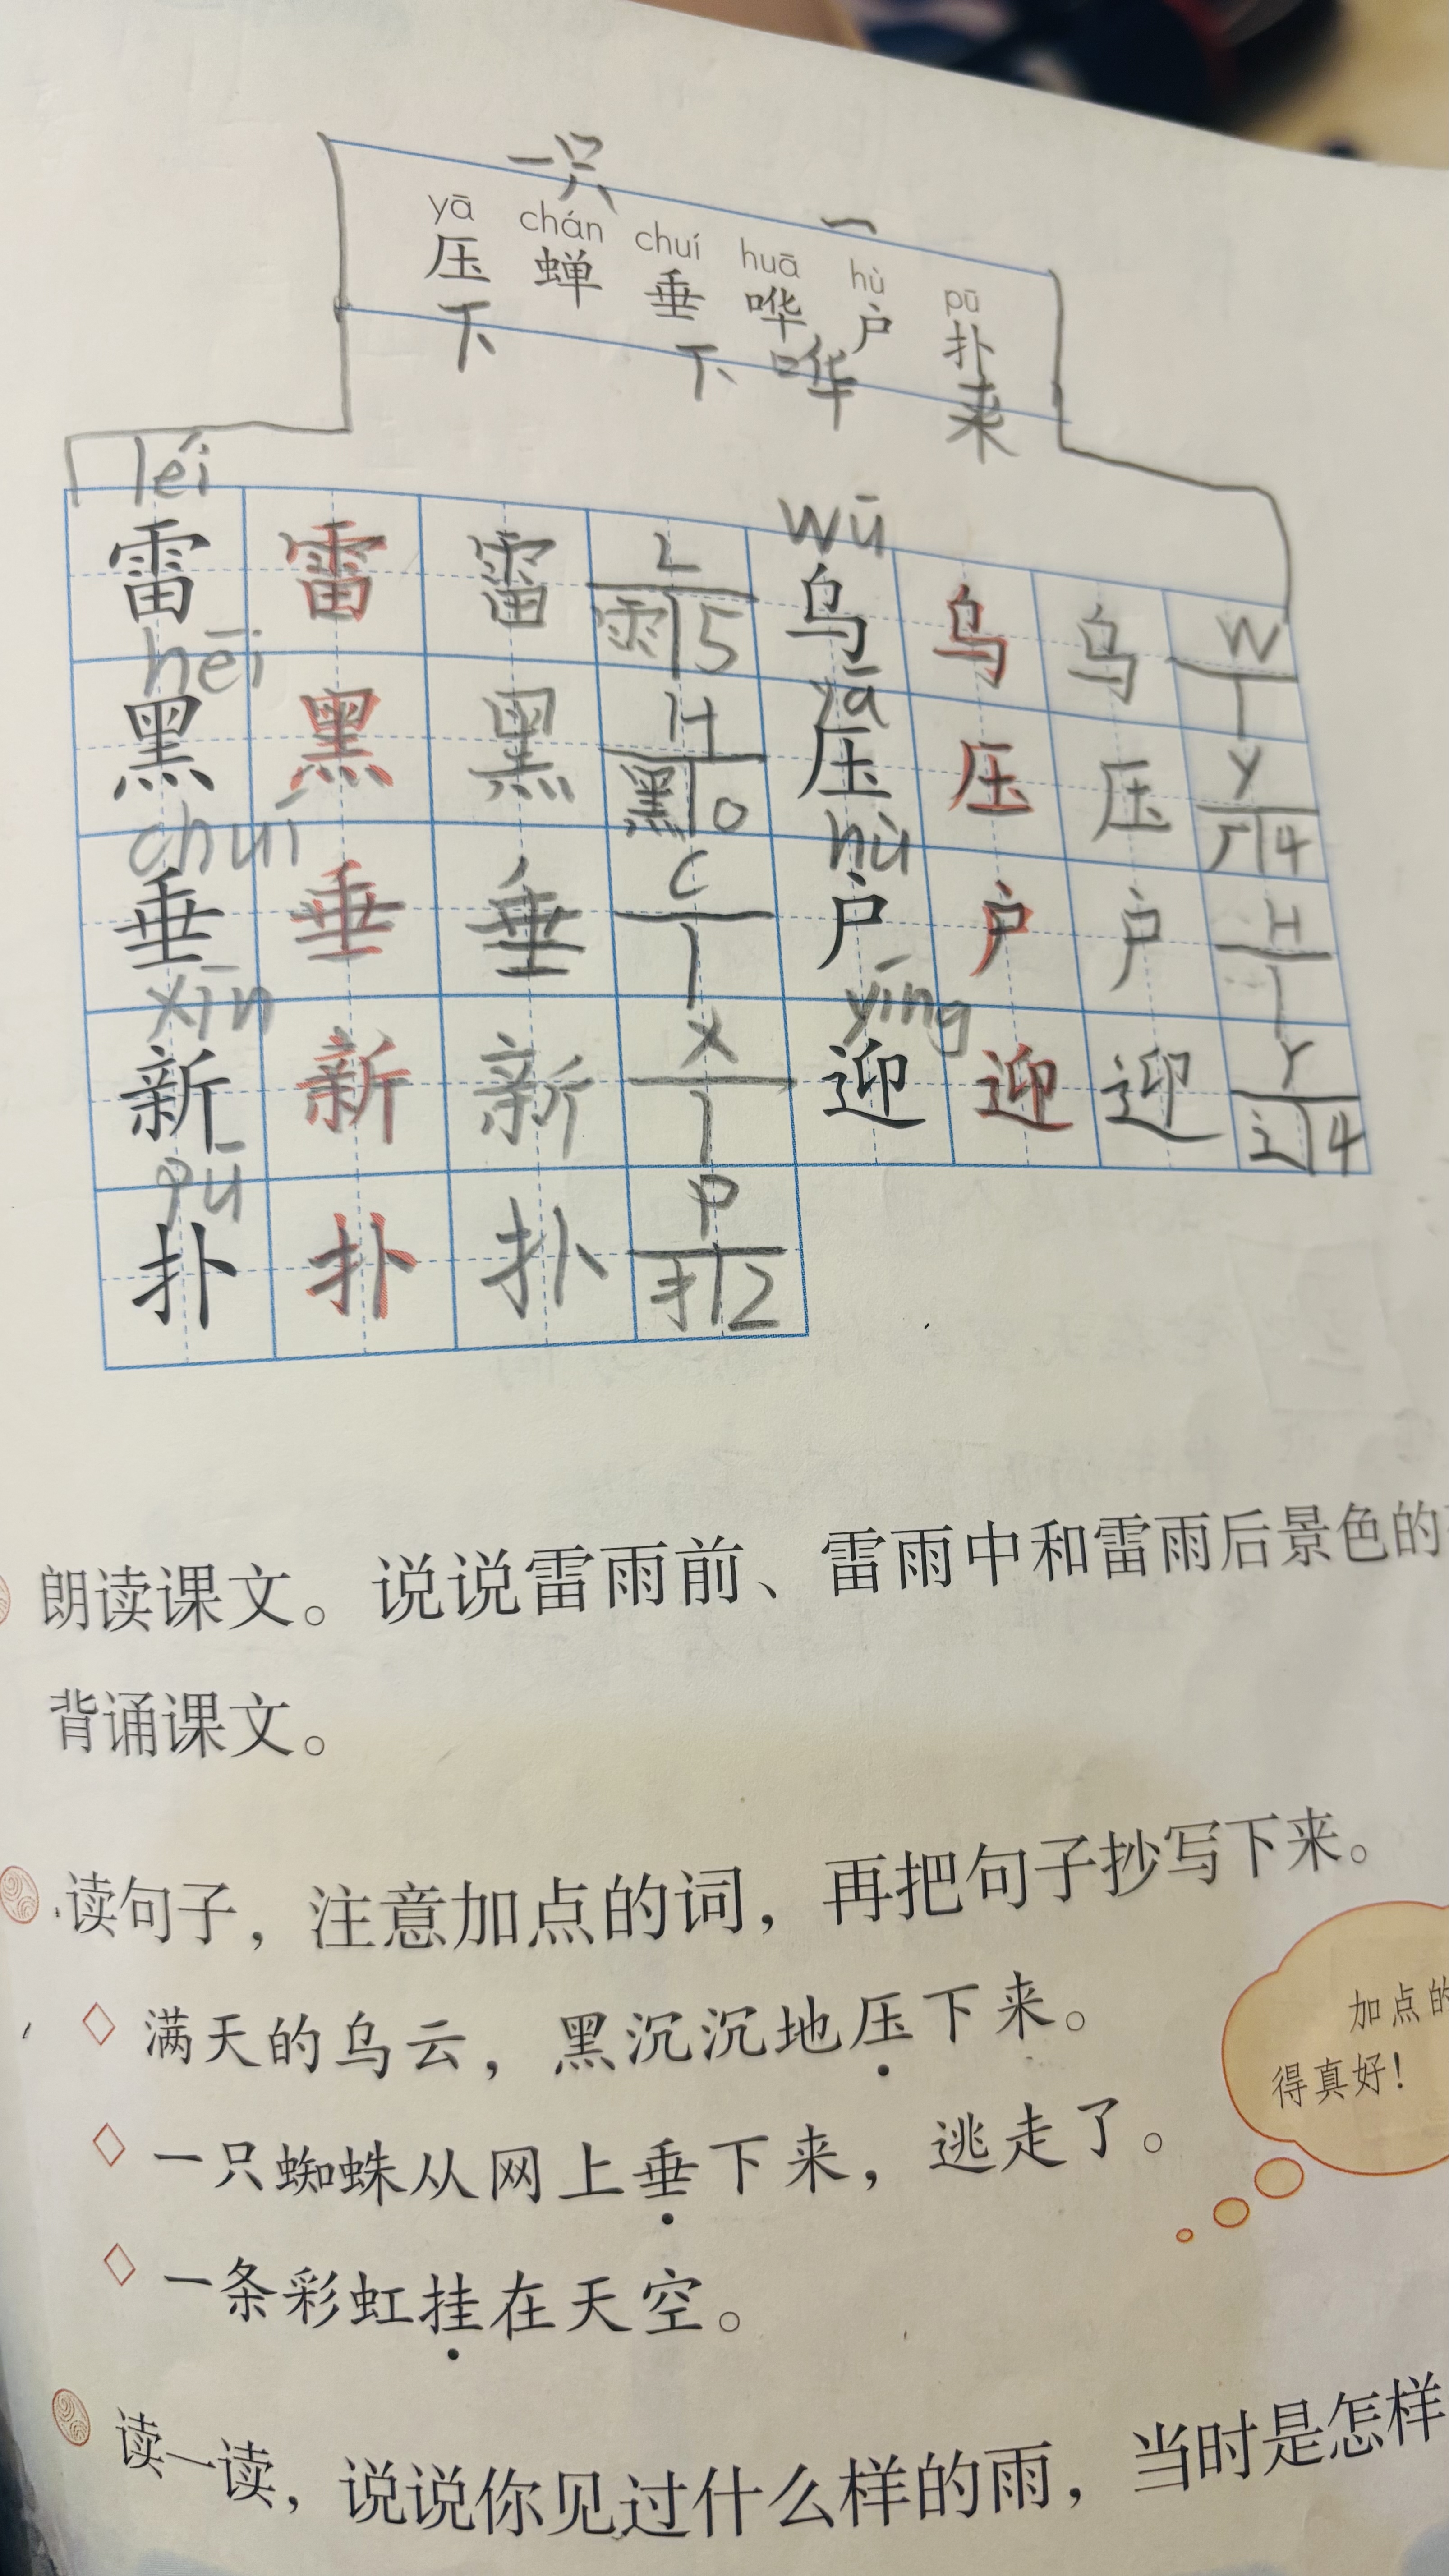 一只 一
yā chán chuí huā hù pū
压 蝉 垂 哗 户 扑
下 下 哗 来
léi wū
雷 雷 雷 L 乌 乌 乌 W
雨 5 1
hēi yā
黑 黑 黑 H 压 压 压 Y
黑 0 厂 4
chuí hù
垂 垂 垂 C 户 户 户 H
1 1
xīn yíng
新 新 新 X 迎 迎 迎 Y
1 辶 4
pū
扑 扑 扑 P
扌 2
朗读课文。说说雷雨前、雷雨中和雷雨后景色的
背诵课文。
读句子，注意加点的词，再把句子抄写下来。
◇ 满天的乌云，黑沉沉地压下来。
◇ 一只蜘蛛从网上垂下来，逃走了。
◇ 一条彩虹挂在天空。
加点的
得真好！
读一读，说说你见过什么样的雨，当时是怎样